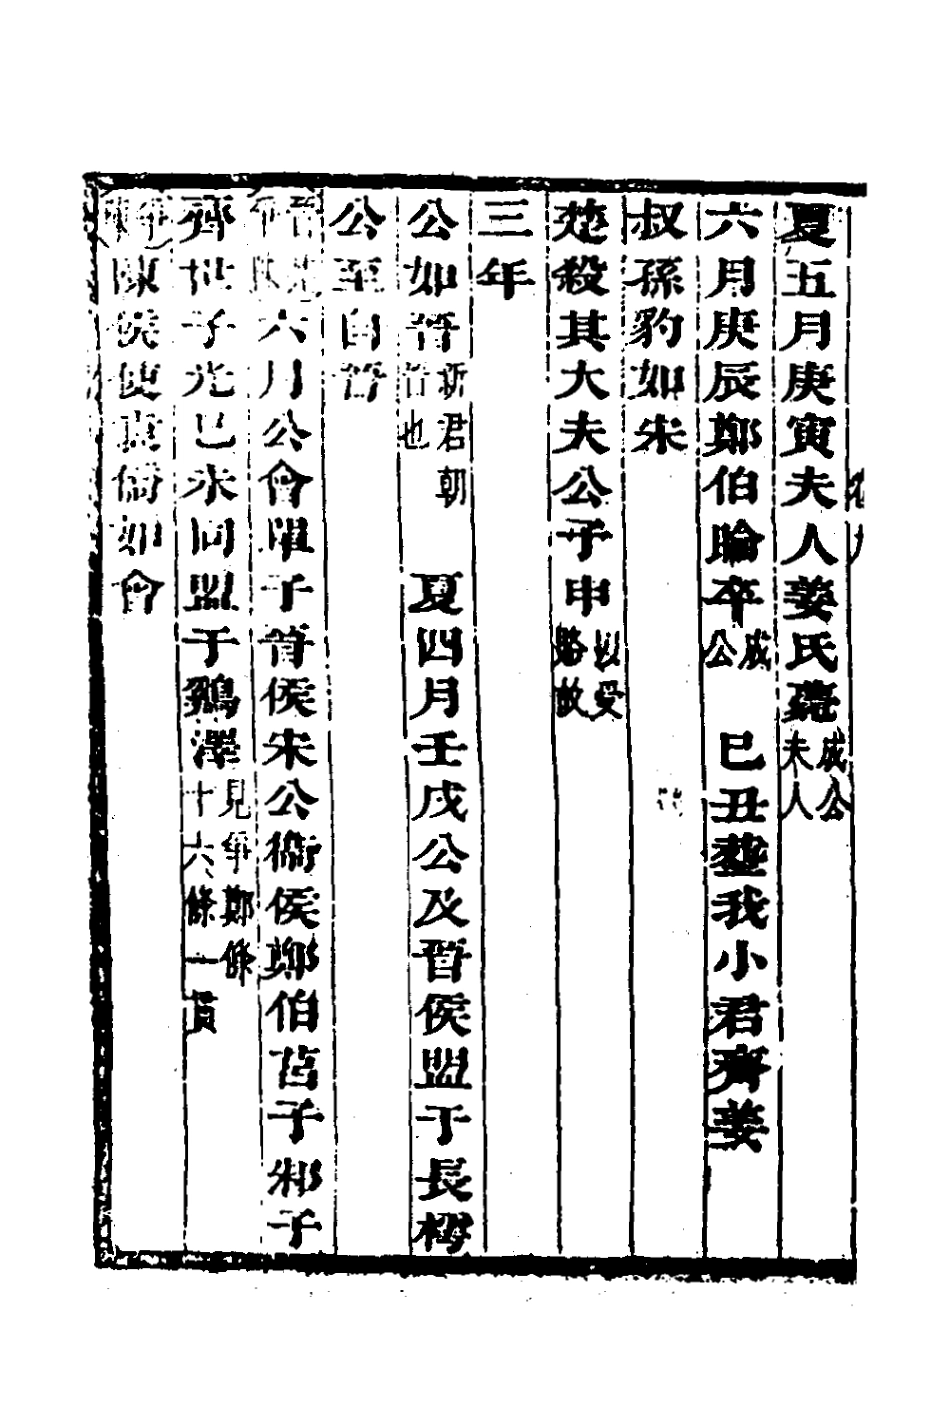 夏五月庚寅夫人姜氏薨成公夫人
六月庚辰鄭伯睔卒成公　己丑葬我小君齊姜
叔孫豹如宋
楚殺其大夫公子申以受賂故
三年
公如晉新君朝晉也　夏四月壬戌公及晉侯盟于長樗
公至自晉
六月公會單子晉侯宋公衞侯鄭伯莒子邾子
齊世子光己未同盟于鷄澤見爭鄭條十六條一貫
陳侯使袁僑如會